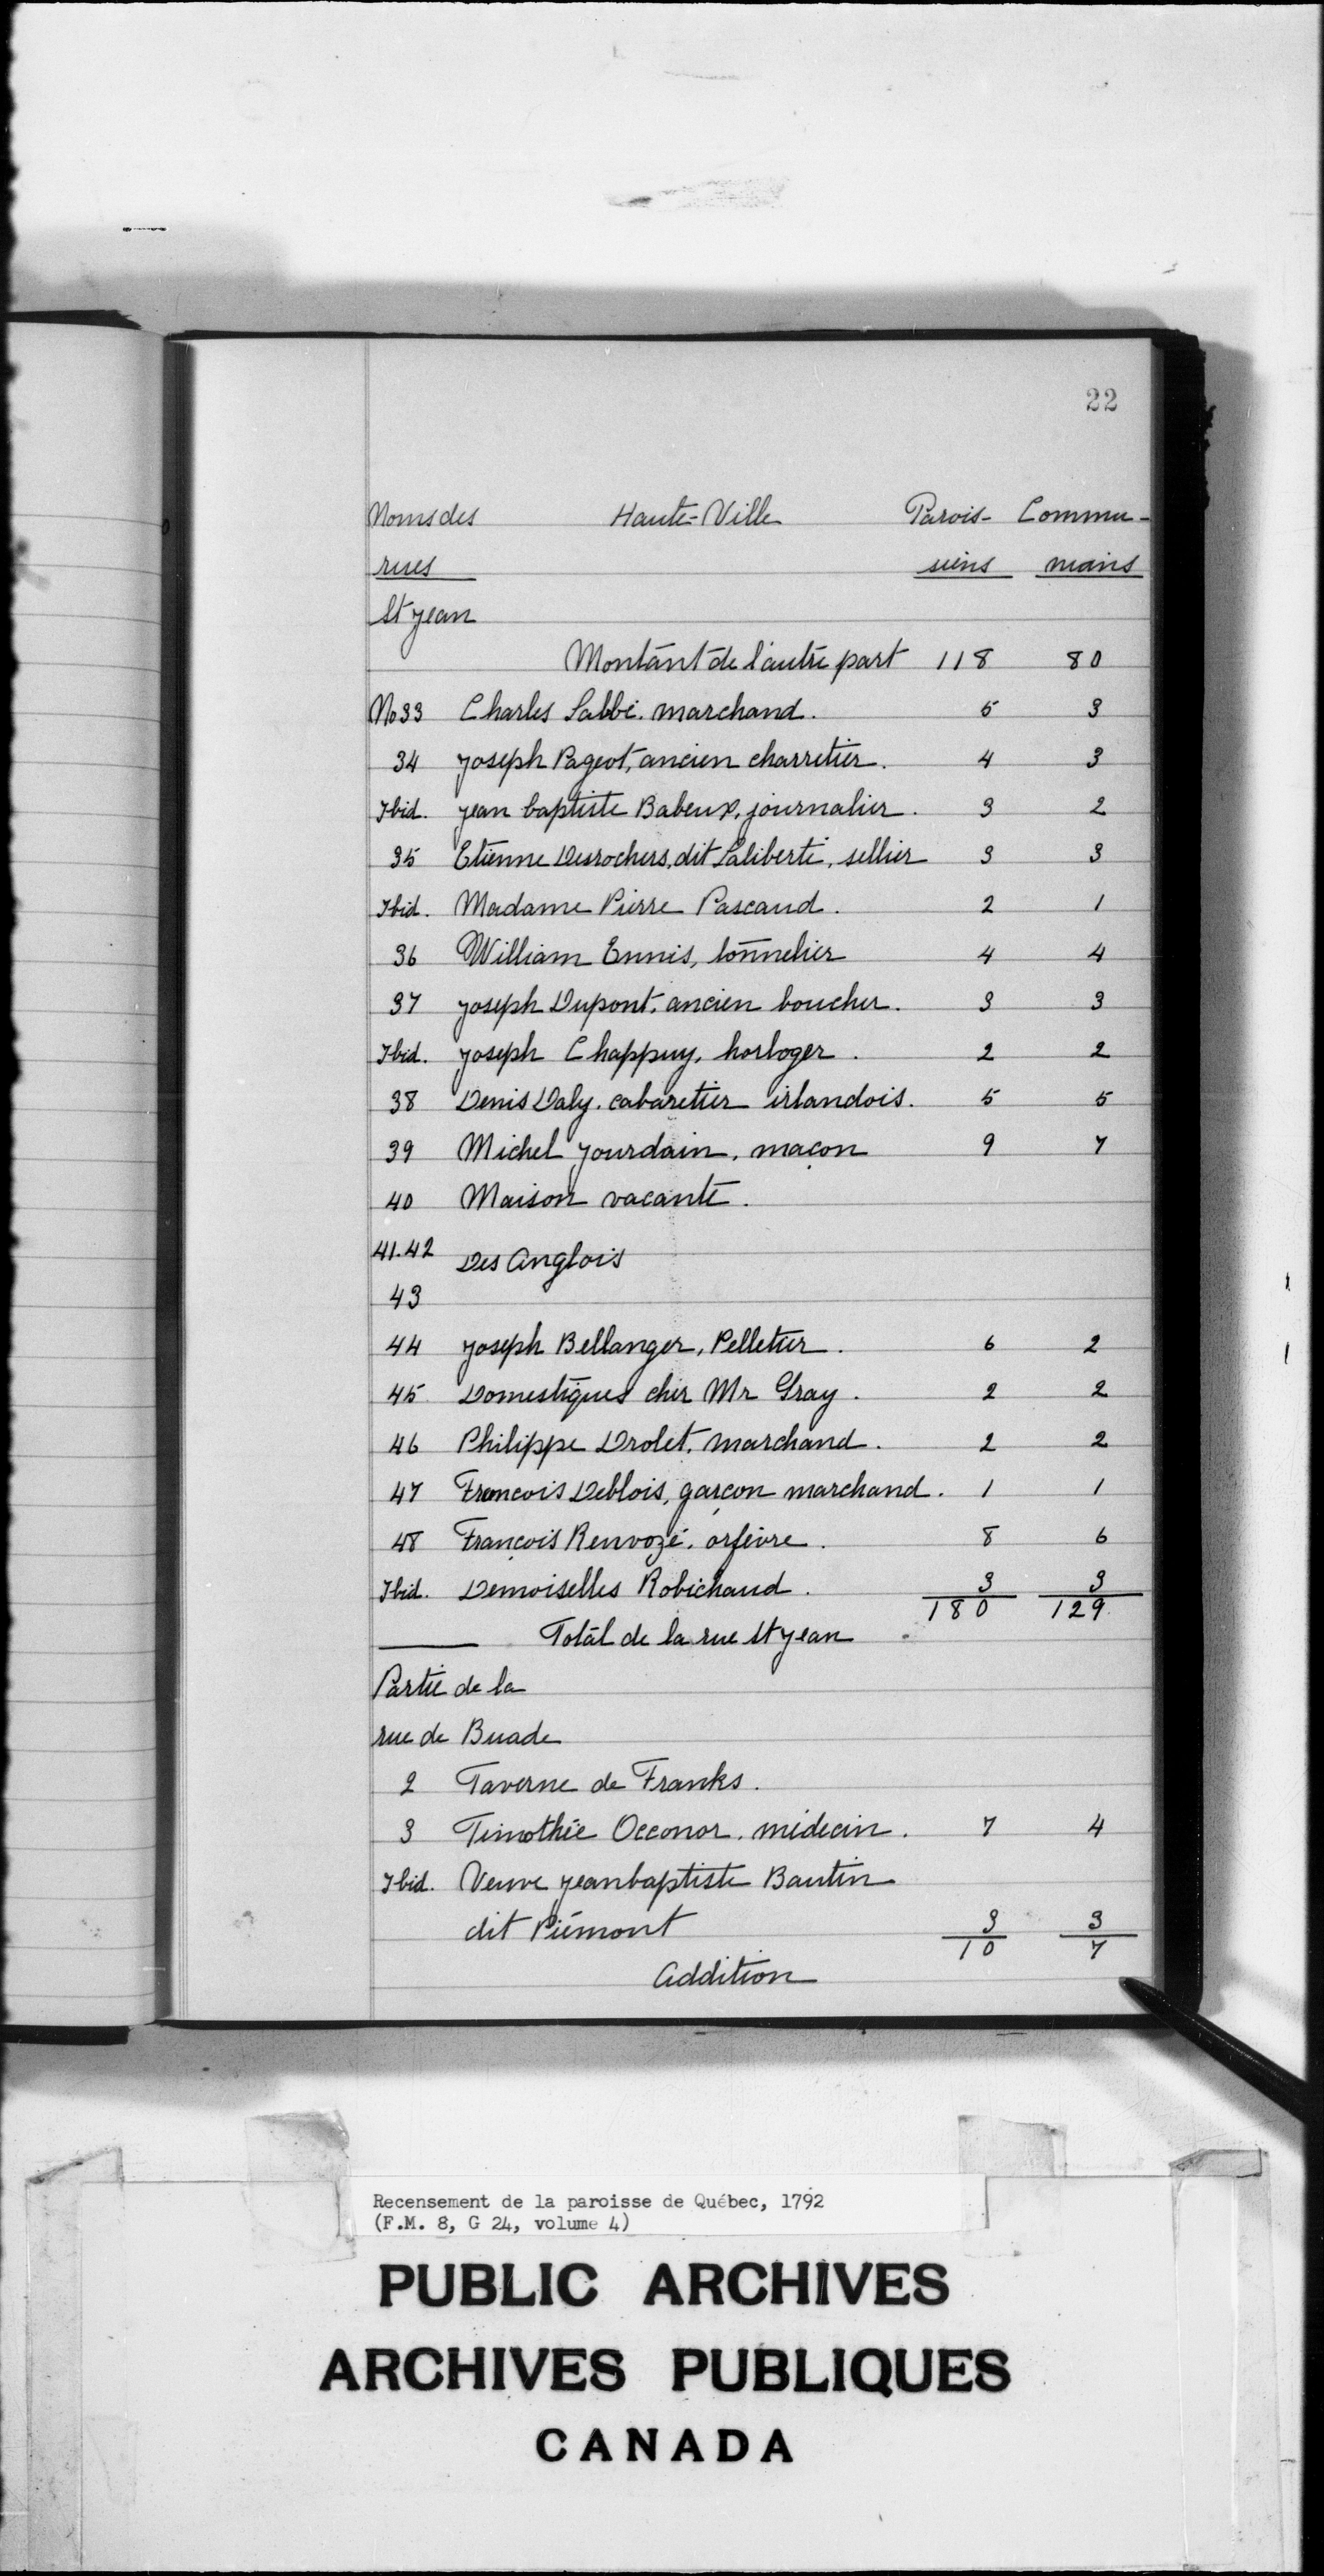 22
Noms des Haute-Ville Parois- Commu-
rues siens niants
St Jean
Montant de l'autre part 118 80
No 33 Charles Labbé. marchand. 5 3
34 Joseph Pageot, ancien charretier. 4 3
Ibid. Jean baptiste Babeux, journalier. 3 2
35 Etienne Desrochers, dit Laliberté, sellier 3 3
Ibid. Madame Pierre Pascaud. 2 1
36 William Ennis, tonnelier 4 4
37 Joseph Dupont, ancien boucher. 3 3
Ibid. Joseph Chappuy, horloger. 2 2
38 Denis Daly. cabaretier irlandois. 5 5
39 Michel Jourdain, maçon 9 7
40 Maison vacante.
41.42 Des Anglois
43
44 Joseph Bellanger, Pelletier. 6 2
45 Domestiques chez Mr Gray. 2 2
46 Philippe Drolet, marchand. 2 2
47 Francois Deblois, garçon marchand. 1 1
48 François Renvozé, orfèvre. 8 6
Ibid. Demoiselles Robichaud. 3 3
180 129
Total de la rue St Jean
Partie de la
rue de Buade
2 Taverne de Franks.
3 Timothée Occonor, médecin. 7 4
Ibid. Veuve Jean baptiste Bautin
dit Piémont 3 3
10 7
Addition
Recensement de la paroisse de Québec, 1792
(F.M. 8, G 24, volume 4)
PUBLIC ARCHIVES
ARCHIVES PUBLIQUES
CANADA